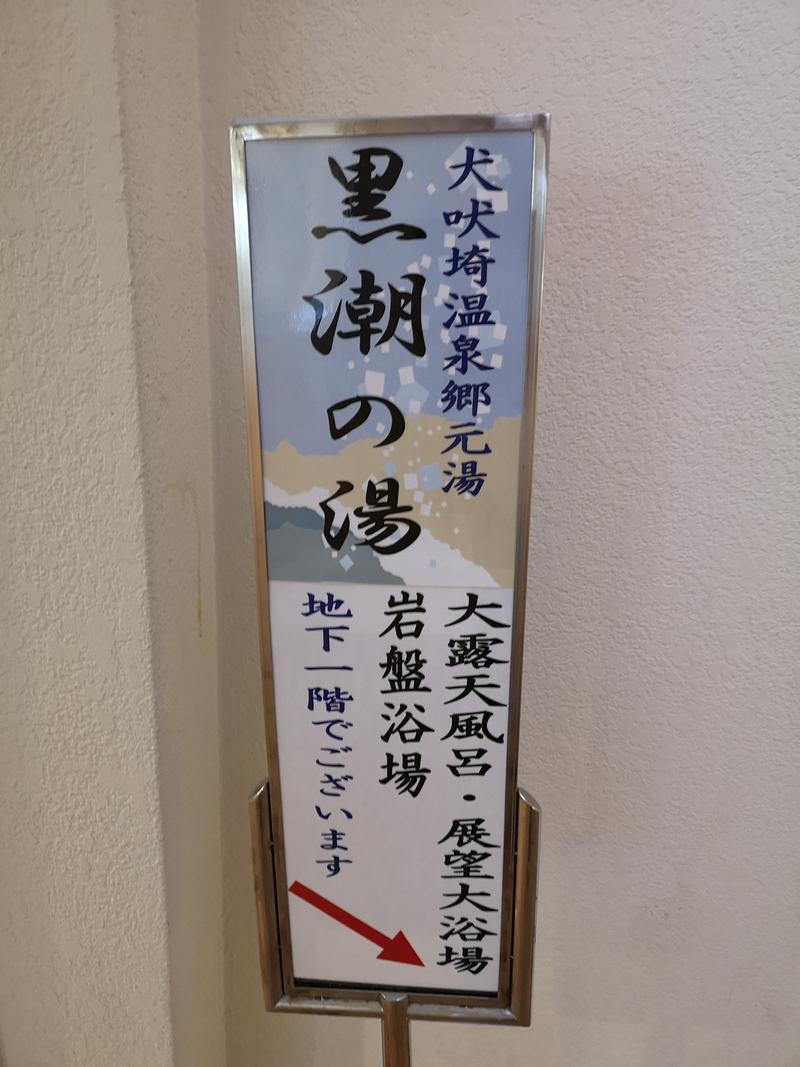 犬吠埼温泉郷元湯
黒潮の湯
大露天風呂・展望大浴場
岩盤浴場
地下一階でございます